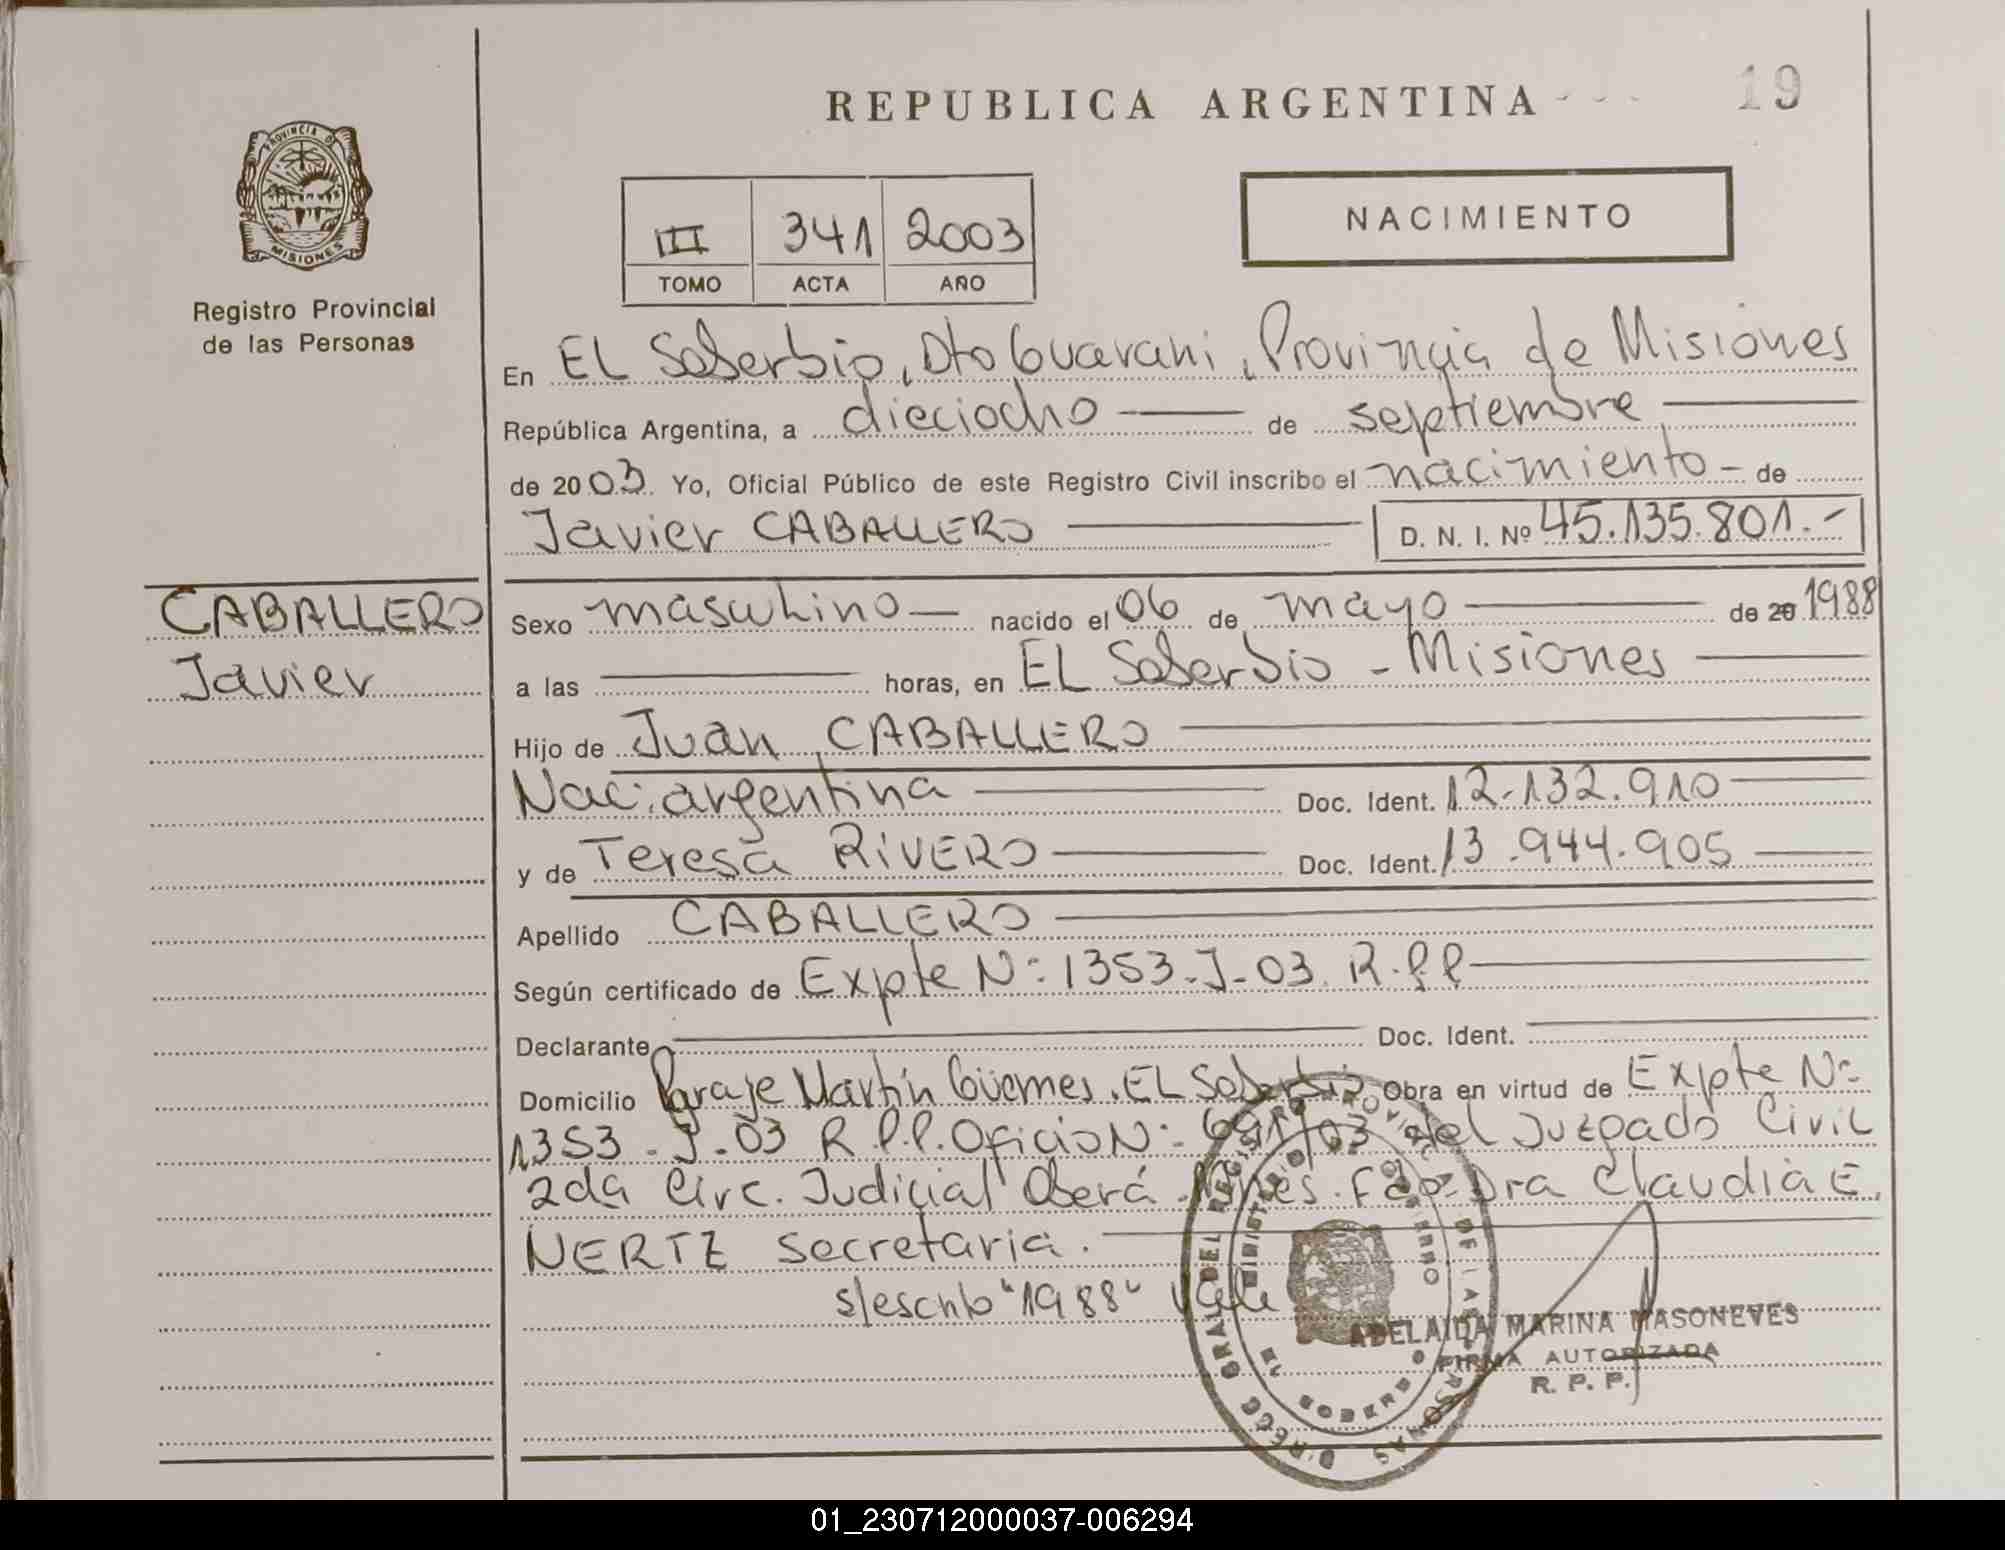 REPUBLICA ARGENTINA - - -
19
PROVINCIA DE MISIONES
Registro Provincial
de las Personas
NACIMIENTO
III 341 2003
TOMO ACTA AÑO
En EL Soberbio, Dto Guarani, Provincia de Misiones
República Argentina, a dieciocho de septiembre
de 2003. Yo, Oficial Público de este Registro Civil inscribo el nacimiento - de
Javier CABALLERO D. N. I. Nº 45.135.801.-
CABALLERO
Javier
Sexo masculino nacido el 06 de mayo de 20 1988
a las horas, en EL Soberbio - Misiones
Hijo de Juan CABALLERO
Nac. argentina Doc. Ident. 12.132.910
y de Teresa RIVERO Doc. Ident. 13.944.905
Apellido CABALLERO
Según certificado de Expte N: 1353-J-03. R.P.P
Declarante Doc. Ident.
Domicilio Paraje Martín Güemes. EL Soberbio Obra en virtud de Expte N:
1353-J-03 R.P.P. Oficio N: 691/03 del Juzgado Civil
2da Circ. Judicial Oberá. Mnes. Fdo. Dra Claudia E.
NERTZ secretaria.
s/escrito "1988" Vale
ADELAIDA MARINA MASONEVES
FIRMA AUTORIZADA
R. P. P.
01_230712000037-006294